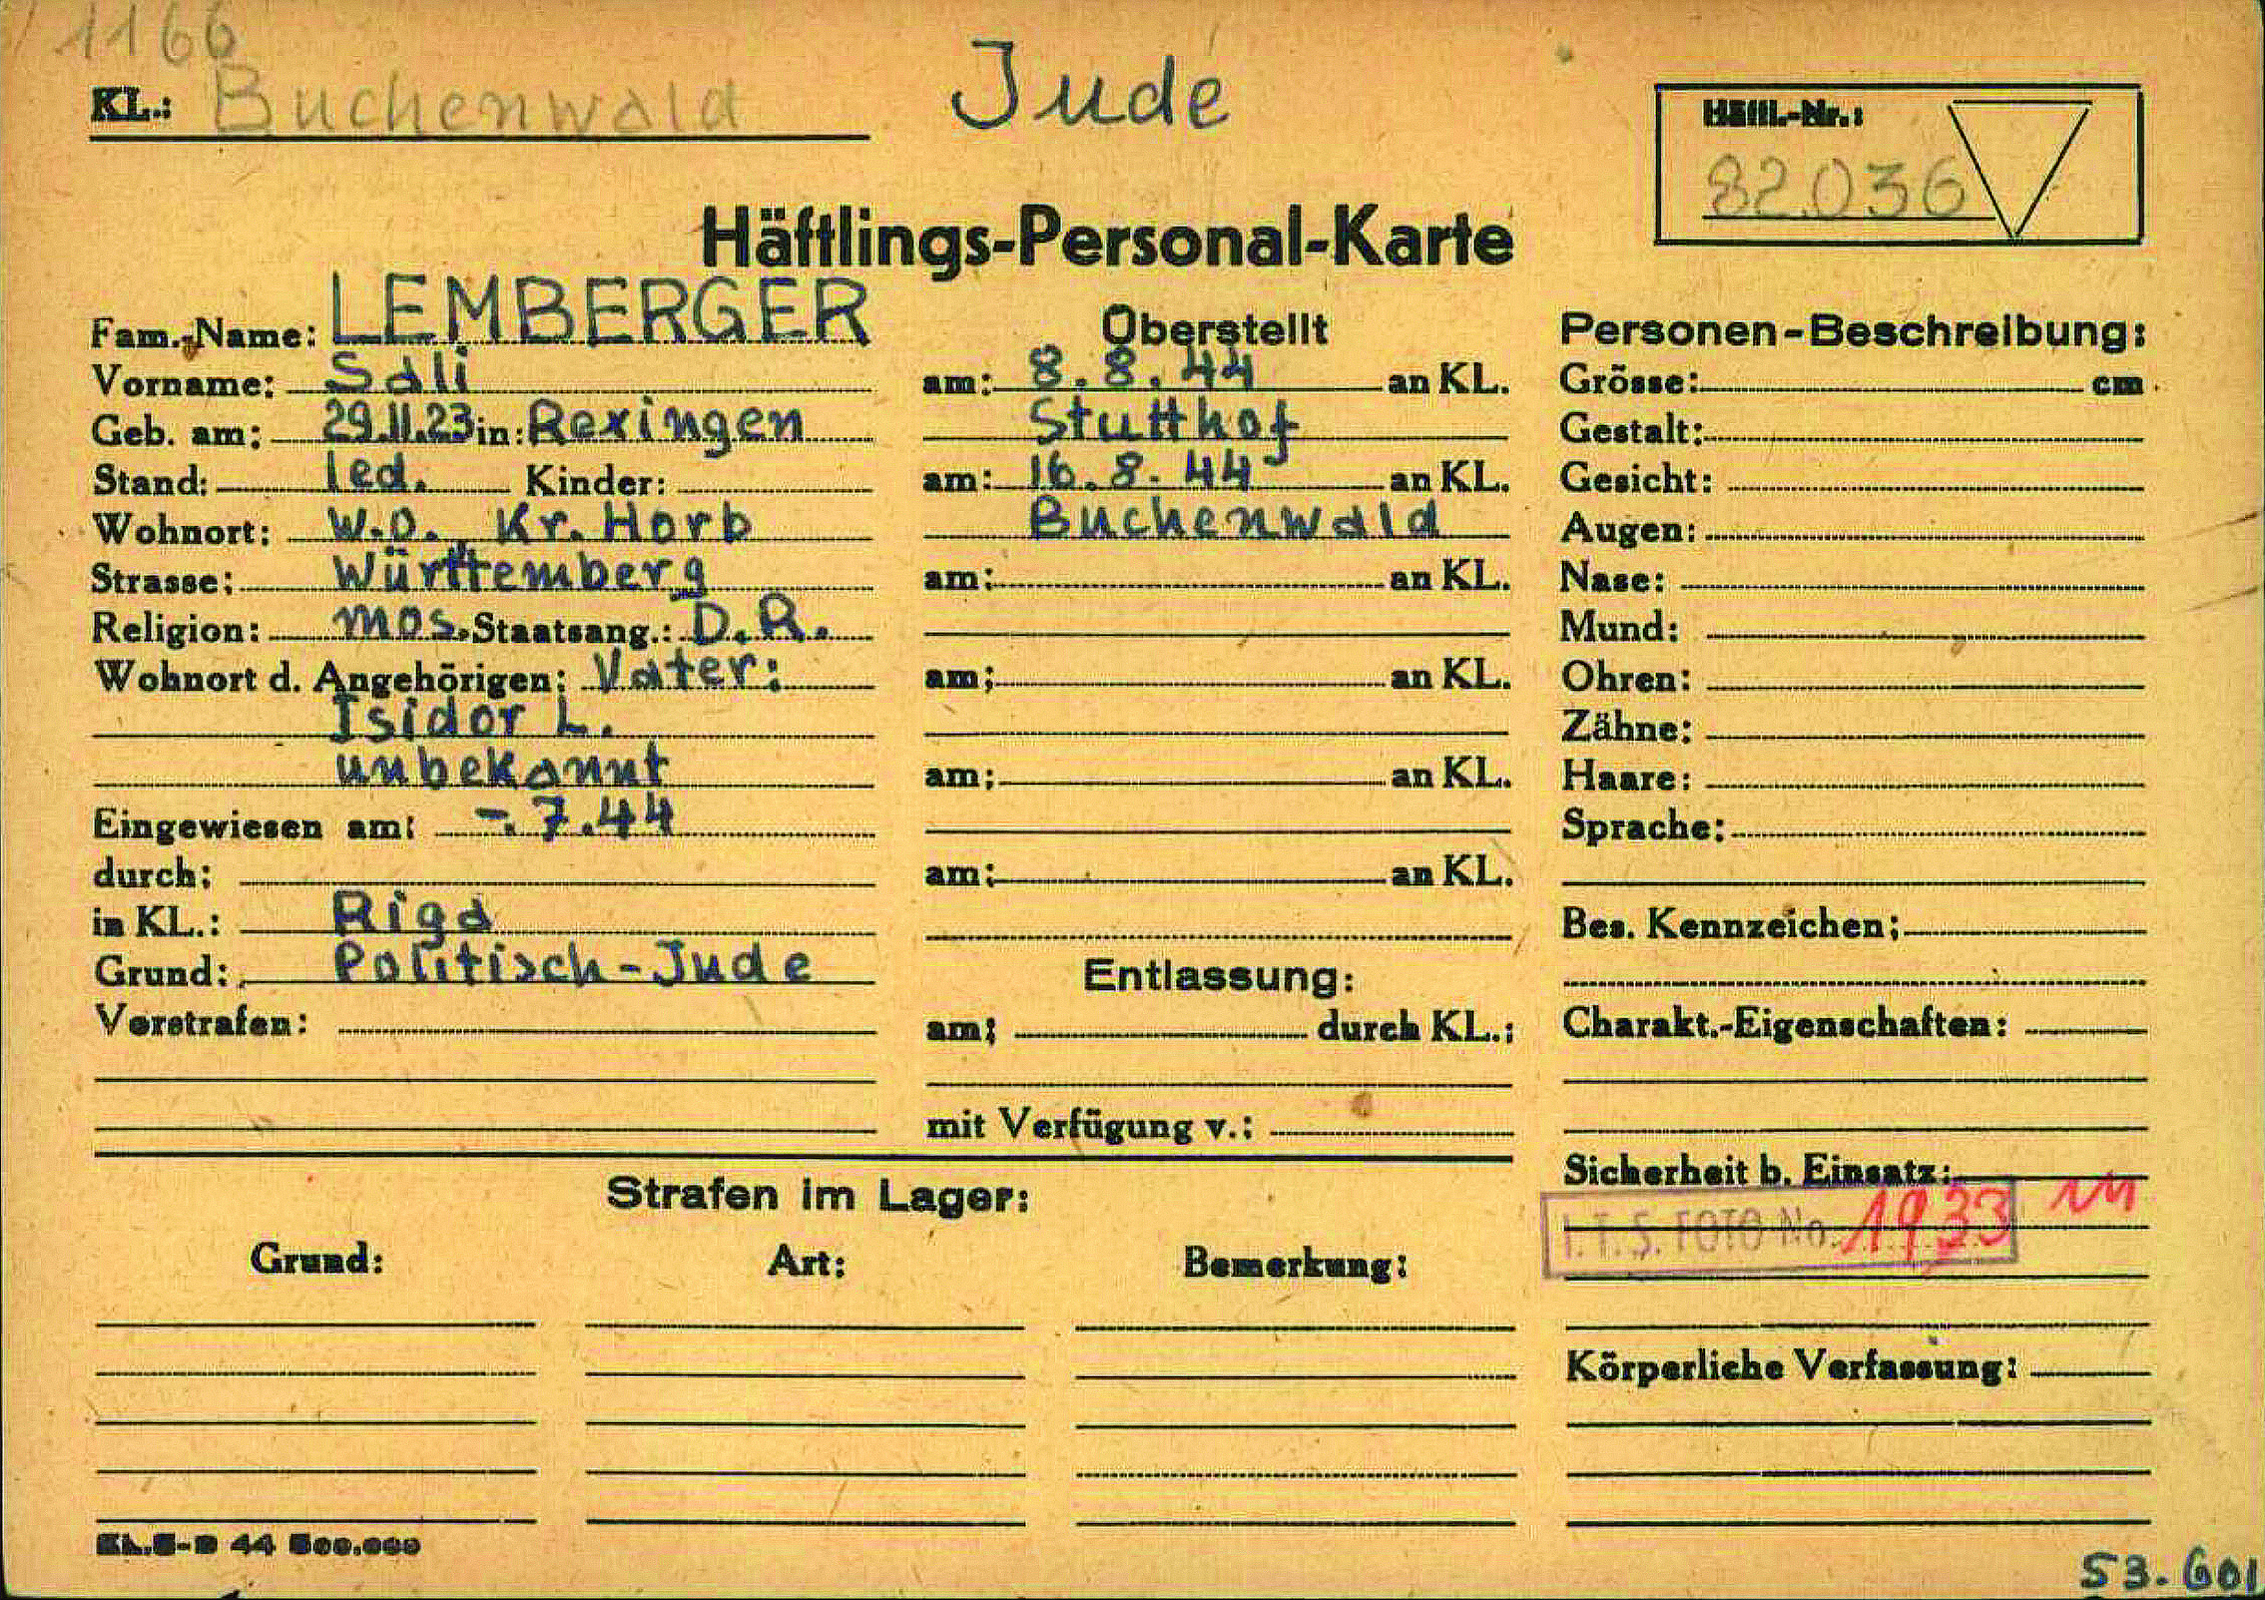 1166
KL.: Buchenwald
Jude
Häftl.-Nr.:
82036
Häftlings-Personal-Karte
Fam.-Name: LEMBERGER
Vorname: Sali
Geb. am: 29.11.23 in: Rexingen
Stand: led. Kinder:
Wohnort: w.o. Kr. Horb
Strasse: Württemberg
Religion: mos. Staatsang.: D.R.
Wohnort d. Angehörigen: Vater:
Isidor L.
unbekannt
Eingewiesen am: -.7.44
durch:
in KL.: Riga
Grund: Politisch-Jude
Vorstrafen:
Überstellt
am: 8.8.44 an KL.
Stutthof
am: 16.8.44 an KL.
Buchenwald
am: an KL.
am: an KL.
am: an KL.
am: an KL.
Entlassung:
am: durch KL.:
mit Verfügung v.:
Personen-Beschreibung:
Grösse: cm
Gestalt:
Gesicht:
Augen:
Nase:
Mund:
Ohren:
Zähne:
Haare:
Sprache:
Bes. Kennzeichen:
Charakt.-Eigenschaften:
Sicherheit b. Einsatz:
I.T.S. FOTO No. 1933
Körperliche Verfassung:
Strafen im Lager:
Grund: Art: Bemerkung:
44 500.000
53.601